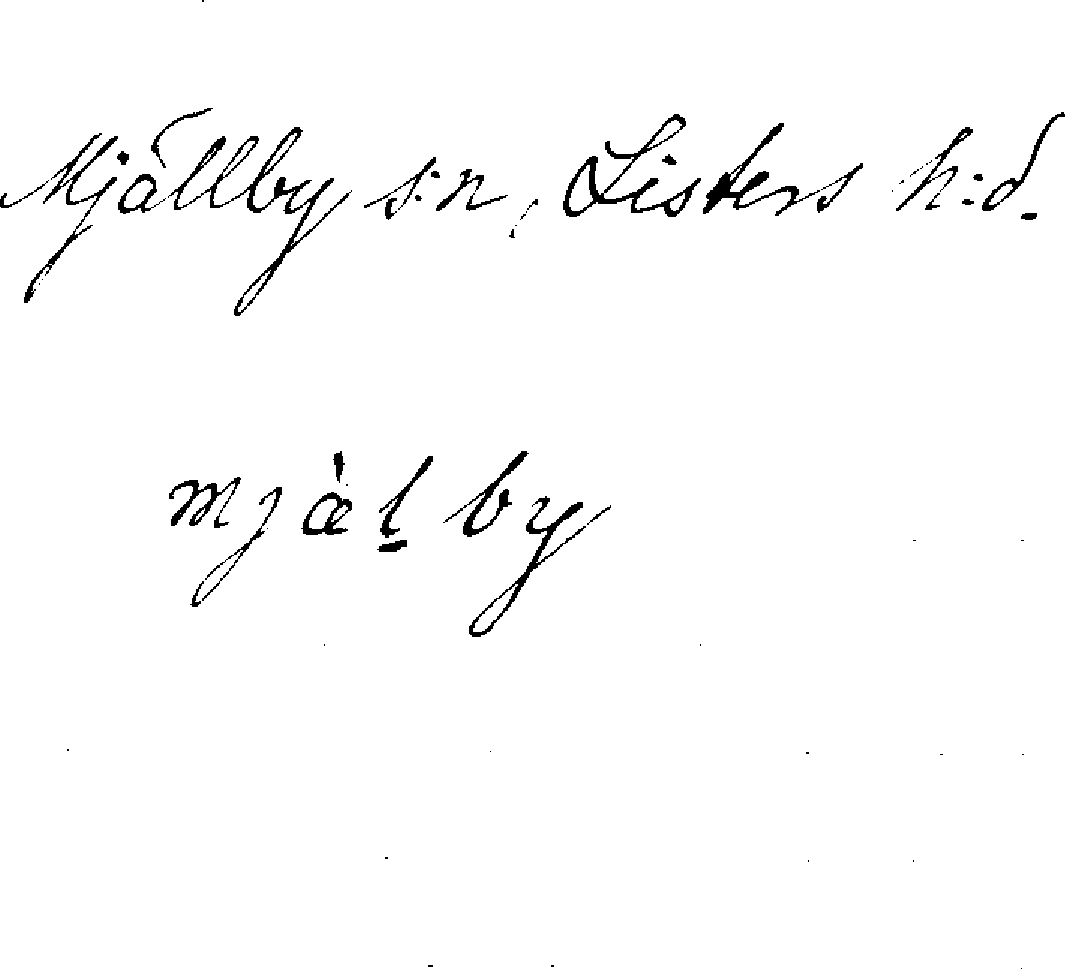 Mjällby s:n, Listers h:d.
mjæ̀l̠by